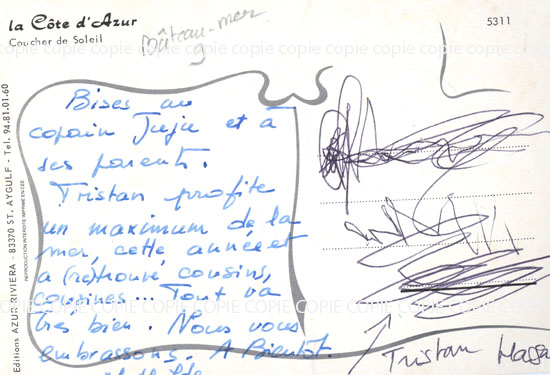 la Côte d'Azur
Coucher de Soleil
5311
Bateau-mer
9
Bises au
copain Juju et à
ses parents.
Tristan profite
un maximum de la
mer, cette année et
a (re)trouvé cousins,
cousines... Tout va
très bien. Nous vous
embrassons. A Bientôt.
Tristan Massa
Editions AZUR RIVIERA - 83370 ST. AYGULF - Tel. 94.81.01.60
REPRODUCTION INTERDITE IMPRIMÉ EN CEE
COPIE COPIE COPIE COPIE COPIE COPIE COPIE COPIE COPIE COPIE